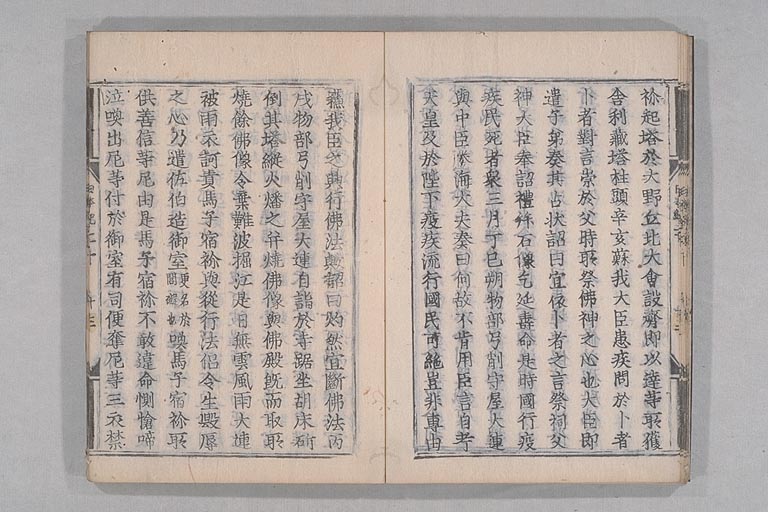 祢起塔於大野丘北大會設齋即以達等所獲
舎利藏塔柱頭辛亥蘇我大臣患疾問於卜者
卜者對言祟於父時所祭佛神之心也大臣即
遣子弟奏其占狀詔曰宜依卜者之言祭祠父
神大臣奉詔禮拜石像乞延壽命是時國行疫
疾民死者衆三月丁巳朔物部弓削守屋大連
與中臣勝海大夫奏曰何故不肯用臣言自考
天皇及於陛下疫疾流行國民可絶豈非專由
蘇我臣之興行佛法歟詔曰灼然宜斷佛法丙
戌物部弓削守屋大連自詣於寺踞坐胡床斫
倒其塔縱火燔之并燒佛像與佛殿既而取所
燒餘佛像令棄難波堀江是日無雲風雨大連
被雨衣訶責馬子宿祢與從行法侶令生毀辱
之心乃遣佐伯造御室更名於閭礙也喚馬子宿祢所
供善信等尼由是馬子宿祢不敢違命惻愴啼
泣喚出尼等付於御室有司便奪尼等三衣禁